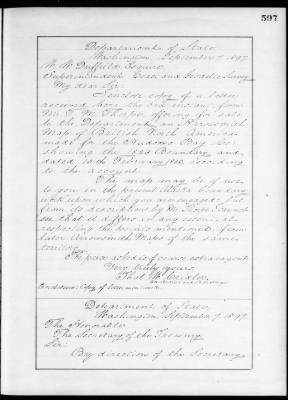 597
Department of State,
Washington, September 7, 1897.
W. W. Duffield, Esquire,
Superintendent Coast and Geodetic Survey.
My dear Sir:
I enclose copy of a letter
received here the 3rd instant, from
Mr. T. W. offering for sale
to the Department, a Arrowsmith
Map of British North America
made for the Hudsons Bay Co.
showing the Boundary, and
dated 10th February, according
to the account.
The map may be of use
to you in the present Alaska boundary
work upon which you are engaged; but
from its description by Mr. I cannot
see that it differs in any essential
respecting the points mentioned, from
later Arrowsmith Maps of the same
territory.
The price asked is of course extravagant.
Very truly yours,
Thos. W. Cridler,
Enclosure: Copy of
Department of State,
Washington, September 7, 1897.
The Honorable
The Secretary of the Treasury.
Sir:
By direction of the Secretary